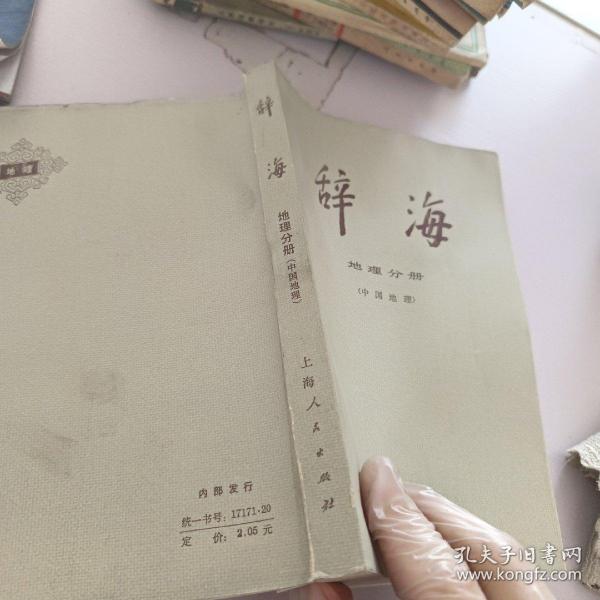 辞海
地理分册
(中国地理)
辞海
地理分册(中国地理)
上海人民出版社
地理
内部发行
统一书号: 17171·20
定 价: 2.05 元
孔夫子旧书网
www.kongfz.com